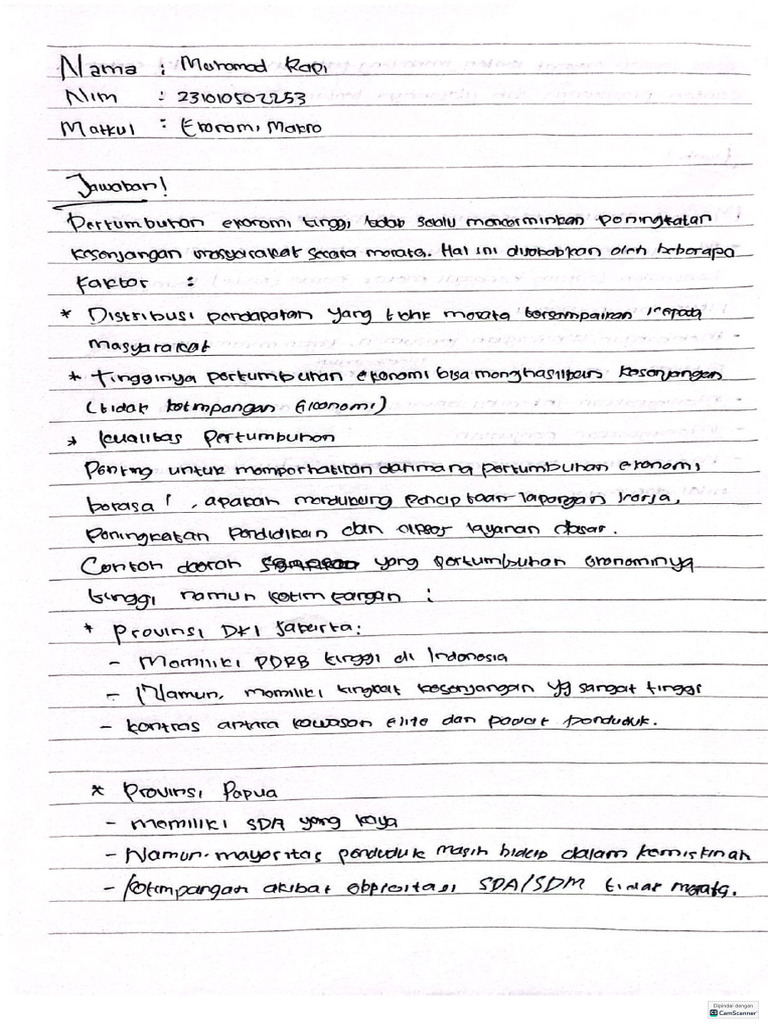 Nama : Muhamad Rafi
Nim : 231010502253
Matkul : Ekonomi Makro
Jawaban!
Pertumbuhan ekonomi tinggi tidak selalu mencerminkan peningkatan
kesenjangan masyarakat secara merata. Hal ini disebabkan oleh beberapa
faktor :
* Distribusi pendapatan yang tidak merata tersampaikan kepada
masyarakat
* Tingginya pertumbuhan ekonomi bisa menghasilkan kesenjangan
(tidak ketimpangan Ekonomi)
* kualitas Pertumbuhan
Penting untuk memperhatikan darimana pertumbuhan ekonomi
berasal, apakah mendukung penciptaan lapangan kerja,
peningkatan pendidikan dan akses layanan dasar.
Contoh daerah yang pertumbuhan ekonominya
tinggi namun ketimpangan :
* Provinsi DKI Jakarta:
- Memiliki PDRB tinggi di Indonesia
- Namun, memiliki tingkat kesenjangan yg sangat tinggi
- kontras antara kawasan elite dan padat penduduk.
* Provinsi Papua
- memiliki SDA yang kaya
- Namun mayoritas penduduk masih hidup dalam kemiskinan
- ketimpangan akibat eksploitasi SDA/SDM tidak merata.
Dipindai dengan
CamScanner